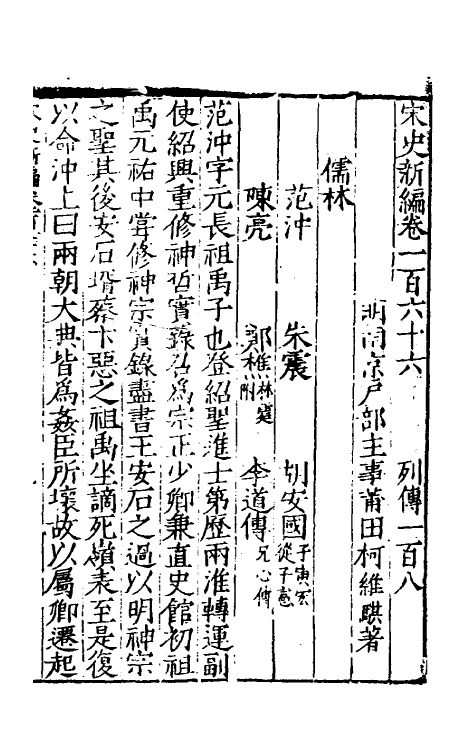 宋史新編卷一百六十六 列傳一百八
明南京戶部主事莆田柯維騏著
儒林
范沖 朱震 胡安國子寅宏 從子憲
陳亮 鄭樵林霆附 李道傳兄心傳
范沖字元長祖禹子也登紹聖進士第歷兩淮轉運副
使紹興重修神哲實錄召為宗正少卿兼直史館初祖
禹元祐中嘗修神宗實錄盡書王安石之過以明神宗
之聖其後安石壻蔡卞惡之祖禹坐謫死嶺表至是復
以命沖上曰兩朝大典皆爲姦臣所壞故以屬卿遷起